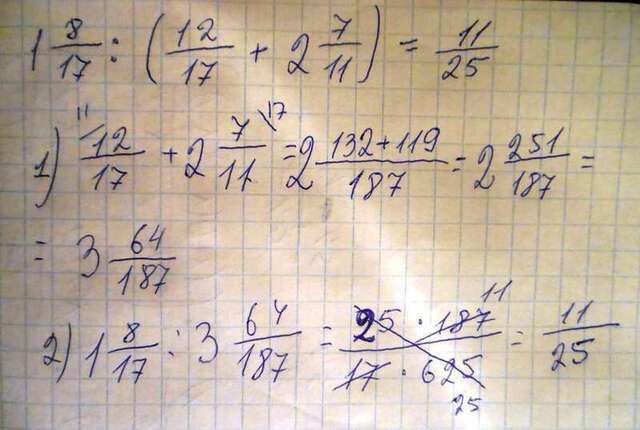 1 8/17 : (12/17 + 2 7/11) = 11/25
1) 12/17 \ 11 + 2 7/11 \ 17 = 2 132+119/187 = 2 251/187 =
= 3 64/187
2) 1 8/17 : 3 64/187 = 25 · 187 11/17 · 625 25 = 11/25